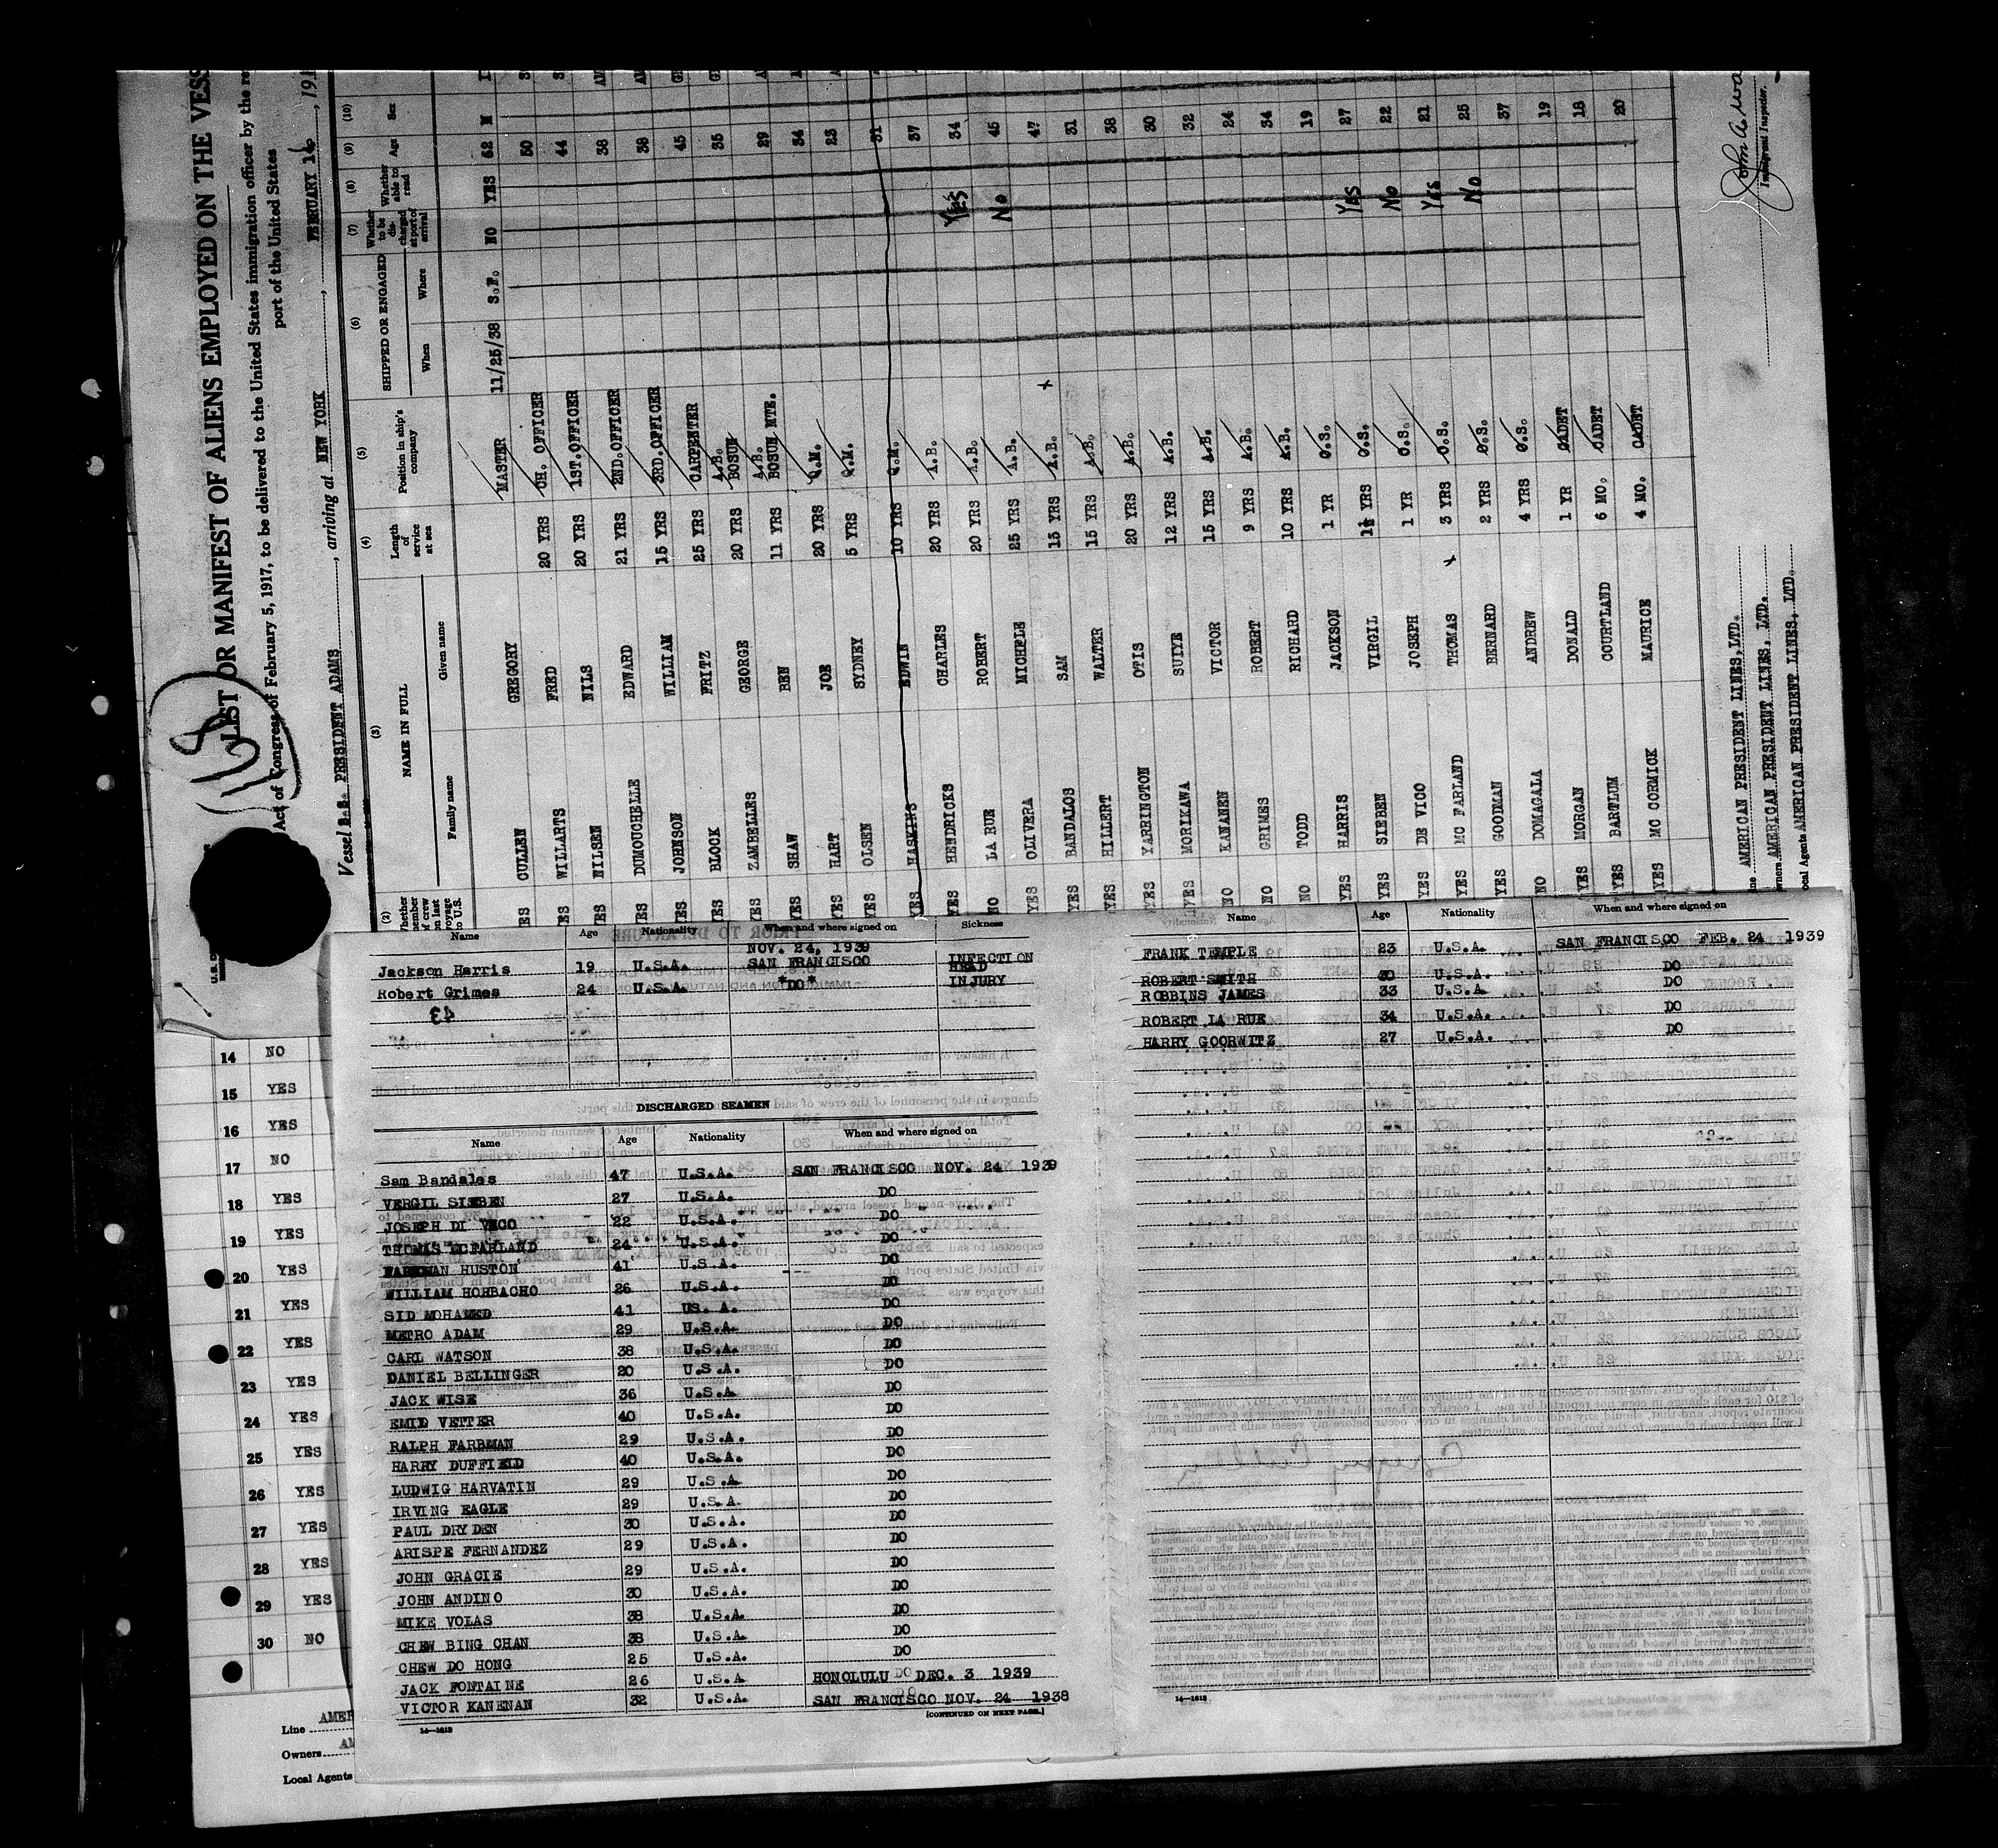 LIST OR MANIFEST OF ALIENS EMPLOYED ON THE VESS
Act of Congress of February 5, 1917, to be delivered to the United States immigration officer by the re
port of the United States
Vessel S.S. PRESIDENT ADAMS, arriving at NEW YORK, FEBRUARY 16, 19
168
(2) (3) (4) (5) (6) (7) (8) (9) (10)
NAME IN FULL
Family name Given name
Length of service at sea
Position in ship's company
SHIPPED OR ENGAGED
When Where
Whether to be discharged at port of arrival
Whether able to read
Age Sex
CULLEN GREGORY MASTER 11/25/38 S.F. NO YES 62 M
YES WILLARTS FRED 20 YRS CH. OFFICER 50
YES NILSEN NILS 20 YRS 1ST.OFFICER 44
YES DUMOUCHELLE EDWARD 21 YRS 2ND.OFFICER 38
YES JOHNSON WILLIAM 15 YRS 3RD.OFFICER 38
YES BLOCK FRITZ 25 YRS CARPENTER 45
YES ZAMBELLES GEORGE 20 YRS A.B. BOSUN 35
YES SHAW BEN 11 YRS A.B. BOSUN MTE. 29
YES HART JOE 20 YRS Q.M. 34
YES OLSEN SYDNEY 5 YRS Q.M. 23
YES HASKINS EDWIN 10 YRS Q.M. 31
YES HENDRICKS CHARLES 20 YRS A.B. 37
NO LA RUE ROBERT 20 YRS A.B. Yes 34
YES OLIVERA MICHELE 25 YRS A.B. No 45
YES BANDALOS SAM 15 YRS A.B. x 47
YES HILLERT WALTER 15 YRS A.B. 31
YES YARRINGTON OTIS 20 YRS A.B. 38
YES MORIKAWA SUIYE 12 YRS A.B. 30
NO KANANEN VICTOR 15 YRS A.B. 32
NO GRIMES ROBERT 9 YRS A.B. 24
NO TODD RICHARD 10 YRS A.B. 34
YES HARRIS JACKSON 1 YR O.S. 19
YES SIEBEN VIRGIL 1½ YRS O.S. Yes 27
YES DE VICO JOSEPH 1 YR O.S. No 22
YES MC FARLAND THOMAS x 3 YRS O.S. Yes 21
YES GOODMAN BERNARD 2 YRS O.S. No 25
NO DOMAGALA ANDREW 4 YRS O.S. 37
YES MORGAN DONALD 1 YR CADET 19
YES BARTLUM COURTLAND 6 MO. CADET 18
YES MC CORMICK MAURICE 4 MO. CADET 20
AMERICAN PRESIDENT LINES,LTD.
AMERICAN PRESIDENT LINES, LTD.
Local Agents AMERICAN PRESIDENT LINES, LTD.
Immigrant Inspector.
14 NO
15 YES
16 YES
17 NO
18 YES
19 YES
20 YES
21 YES
22 YES
23 YES
24 YES
25 YES
26 YES
27 YES
28 YES
29 YES
30 NO
Line AMER
Owners AM
Local Agents
Name Age Nationality When and where signed on Sickness
NOV. 24, 1939
Jackson Harris 19 U.S.A. SAN FRANCISCO INFECTION
Robert Grimes 24 U.S.A. "DO" HEAD INJURY
43
DISCHARGED SEAMEN
Name Age Nationality When and where signed on
Sam Bandalos 47 U.S.A. SAN FRANCISCO NOV. 24 1939
VERGIL SIEBEN 27 U.S.A. DO
JOSEPH DI VECO 22 U.S.A. DO
THOMAS MCFARLAND 24 U.S.A. DO
HUSTON 41 U.S.A. DO
WILLIAM HORBACHO 26 U.S.A. DO
SID MOHAMED 41 US. A. DO
METRO ADAM 29 U.S.A. DO
CARL WATSON 38 U.S.A. DO
DANIEL BELLINGER 20 U.S.A. DO
JACK WISE 36 U.S.A DO
EMID VETTER 40 U.S.A. DO
RALPH FARBMAN 29 U.S.A. DO
HARRY DUFFIELD 40 U.S.A. DO
LUDWIG HARVATIN 29 U.S.A DO
IRVING EAGLE 29 U.S.A. DO
PAUL DRYDEN 30 U.S.A. DO
ARISPE FERNANDEZ 29 U.S.A. DO
JOHN GRACIE 29 U.S.A. DO
JOHN ANDINO 30 U.S.A. DO
MIKE VOLAS 38 U.S.A DO
CHEW BING CHAN 38 U.S.A DO
CHEW DO HONG 25 U.S.A. DO
JACK FONTAINE 26 U.S.A HONOLULU DEC. 3 1939
VICTOR KANENAN 32 U.S.A. SAN FRANCISCO NOV. 24 1938
14—1613
[CONTINUED ON NEXT PAGE.]
Name Age Nationality When and where signed on
FRANK TEMPLE 23 U.S.A. SAN FRANCISCO FEB. 24 1939
ROBERT SMITH 30 U.S.A. DO
ROBBINS JAMES 33 U.S.A DO
ROBERT LA RUE 34 U.S.A. DO
HARRY GOORWITZ 27 U.S.A. DO
14—1613